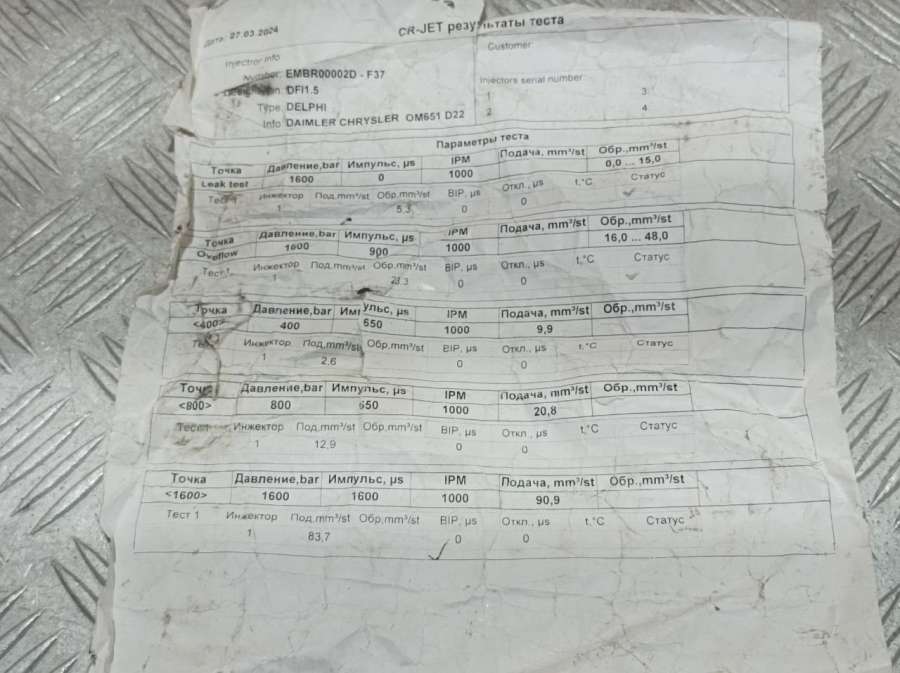 Дата: 27.03.2024
CR-JET результаты теста
Injector info
Customer:
Number: EMBR00002D - F37
DFI1.5
Type: DELPHI
Info: DAIMLER CHRYSLER OM651 D22
Injectors serial number:
1 3
2 4
Параметры теста
Точка Давление,bar Импульс, µs IPM Подача, mm³/st Обр.,mm³/st
Leak test 1600 0 1000 0,0 ... 15,0
Тест 1 Инжектор Под.mm³/st Обр.mm³/st BIP, µs Откл., µs t,°C Статус
1 5,3 0 0
Точка Давление,bar Импульс, µs IPM Подача, mm³/st Обр.,mm³/st
Oveflow 1600 900 1000 16,0 ... 48,0
Тест 1 Инжектор Под.mm³/st Обр.mm³/st BIP, µs Откл., µs t,°C Статус
1 0 0
Точка Давление,bar Импульс, µs IPM Подача, mm³/st Обр.,mm³/st
<400> 400 550 1000 9,9
Инжектор Под.mm³/st Обр.mm³/st BIP, µs Откл., µs t,°C Статус
1 2,6 0 0
Точка Давление,bar Импульс, µs IPM Подача, mm³/st Обр.,mm³/st
<800> 800 650 1000 20,8
Тест 1 Инжектор Под.mm³/st Обр.mm³/st BIP, µs Откл., µs t,°C Статус
1 12,9 0 0
Точка Давление,bar Импульс, µs IPM Подача, mm³/st Обр.,mm³/st
<1600> 1600 1600 1000 90,9
Тест 1 Инжектор Под.mm³/st Обр.mm³/st BIP, µs Откл., µs t,°C Статус
1 83,7 0 0